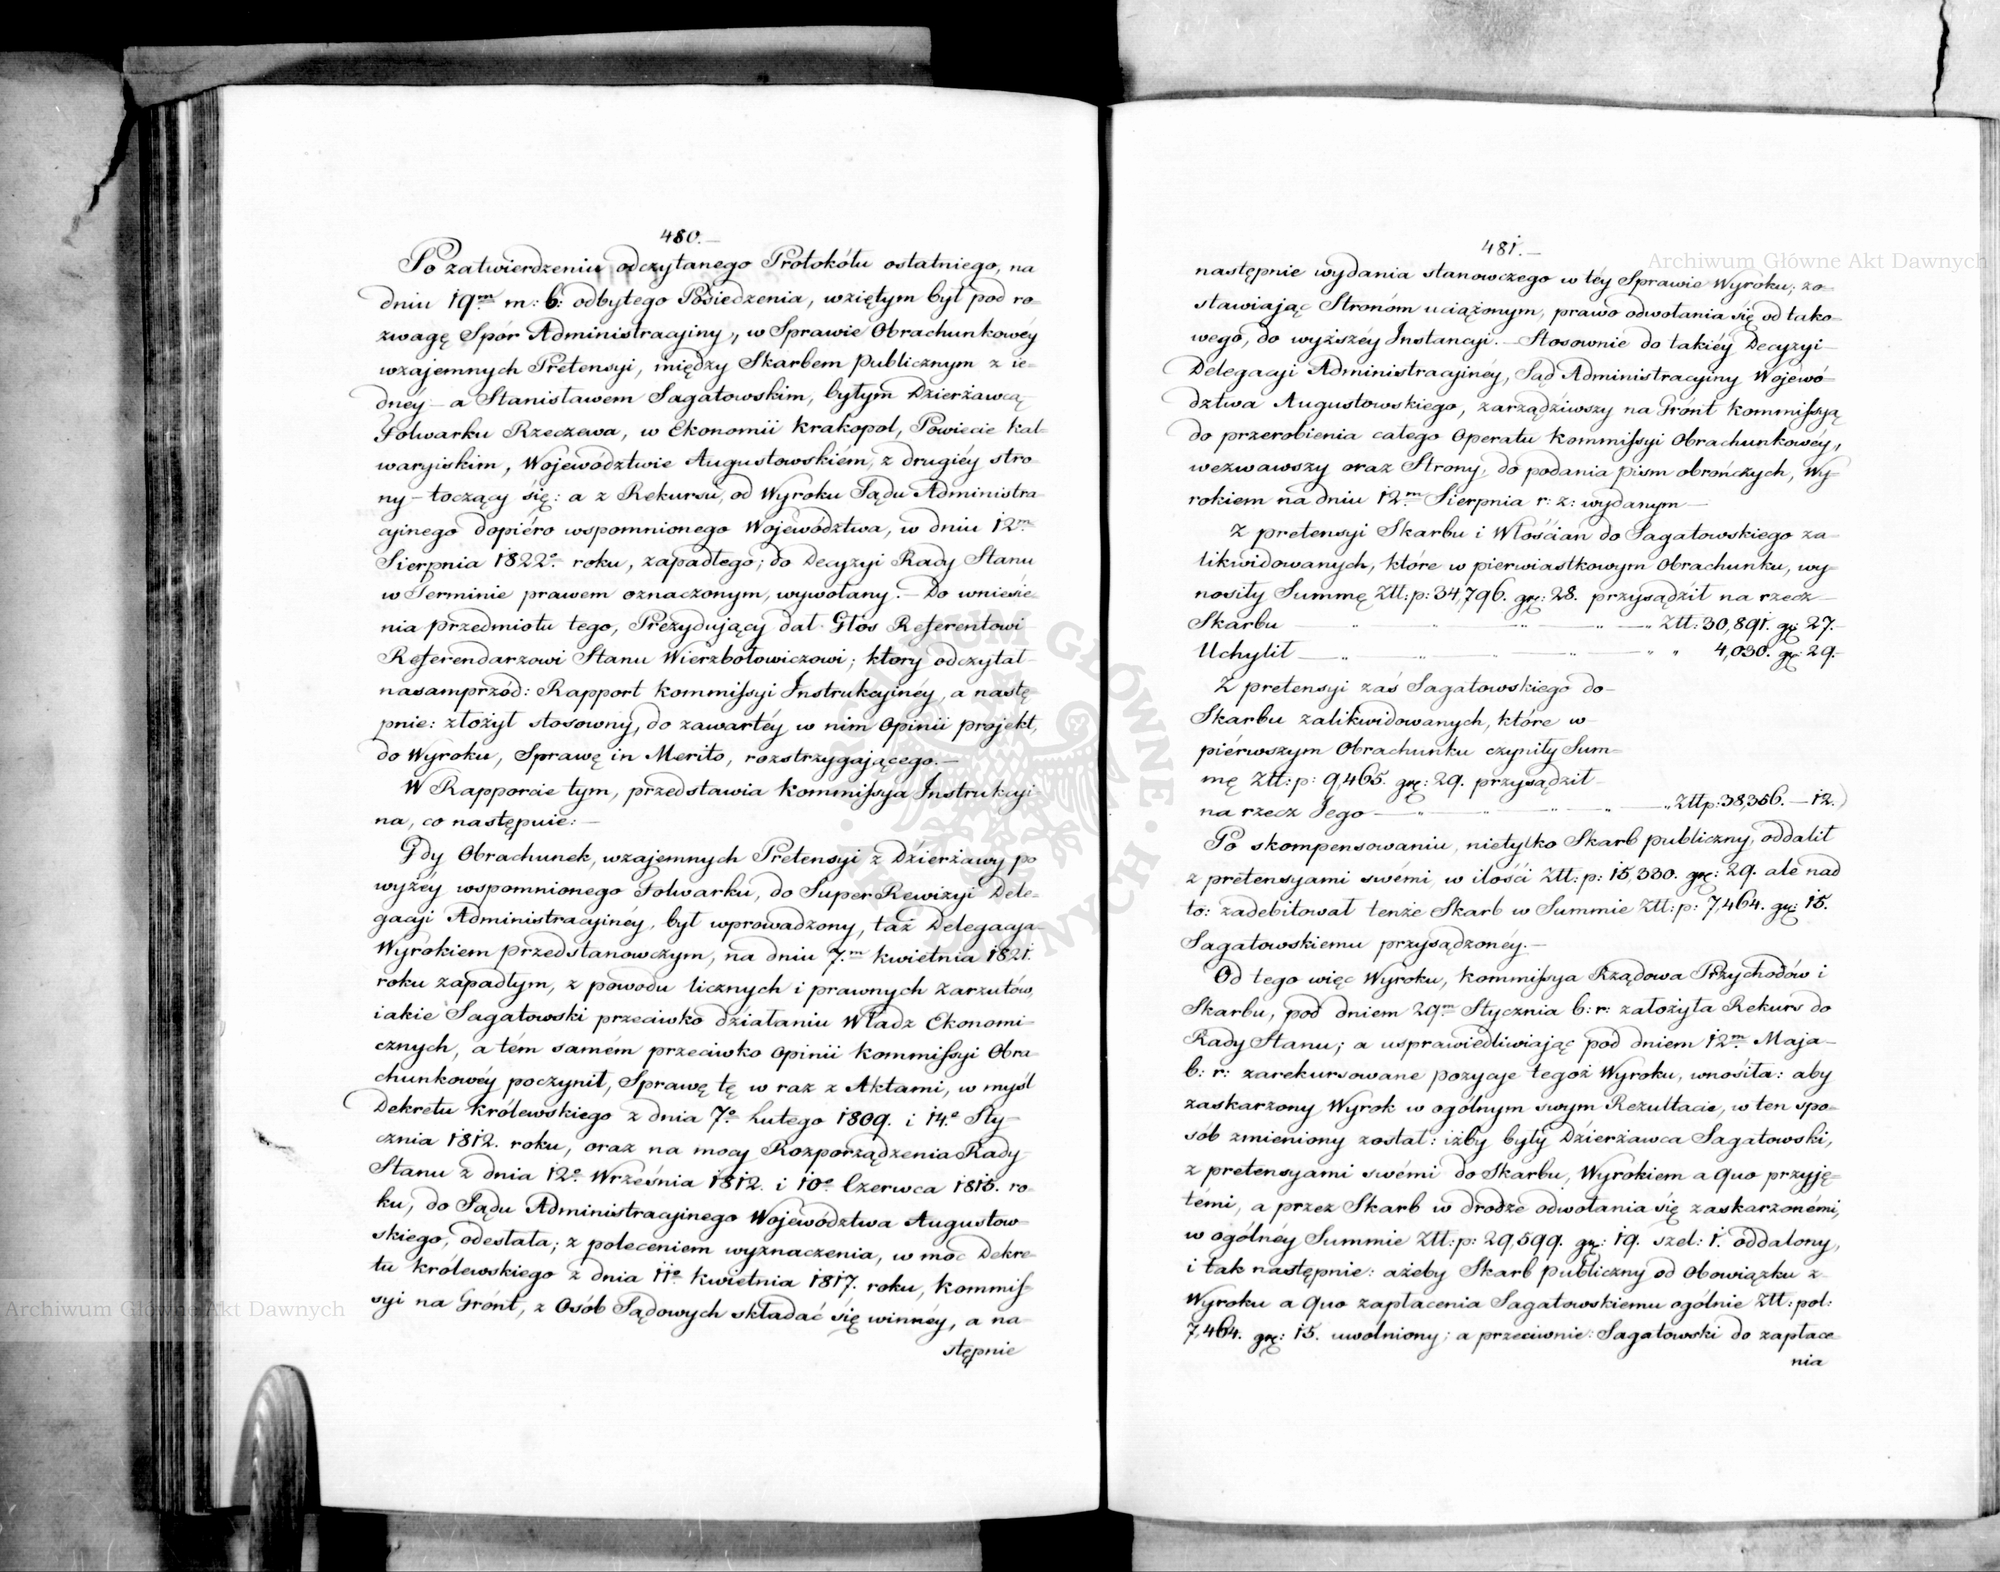 480.
Po zatwierdzeniu odczytanego Protokółu ostatniego, na
dniu 19m m: b: odbytego Posiedzenia, wziętym był pod ro-
zwagę Spór Administracyiny, w Sprawie Obrachunkowéy
wzajemnych Pretensyi, między Skarbem publicznym z ie-
dney - a Stanisławem Sagatowskim, byłym Dzierżawcą
Folwarku Rzeczewa, w Ekonomii Krakopol, Powiecie Kal-
waryiskim, Województwie Augustowskiém, z drugiéy stro-
ny - toczący się: a z Rekursu, od Wyroku Sądu Administra-
cyinego dopiéro wspomnionego Województwa, w dniu 12m
Sierpnia 1822o roku, zapadłego; do Decyzyi Rady Stanu
w Terminie prawem oznaczonym, wywołany. - Do wniesie-
nia przedmiotu tego, Prezydujący dał Głos Referentowi
Referendarzowi Stanu Wierzbołowiczowi; który odczytał
nasamprzód: Rapport Kommissyi Instrukcyinéy, a nastę-
pnie: złożył stosowny, do zawartéy w nim Opinii projekt,
do Wyroku, Sprawę in Merito, rozstrzygającego. -
W Rapporcie tym, przedstawia Kommissya Instrukcyi-
na, co następuie: -
Gdy Obrachunek, wzajemnych Pretensyi z Dzierżawy po
wyżéy wspomnionego Folwarku, do SuperRewizyi Dele-
gacyi Administracyiney, był wprowadzony, taż Delegacya
Wyrokiem przedstanowczym, na dniu 7m Kwietnia 1821.
roku zapadłym, z powodu licznych i prawnych zarzutów,
iakie Sagatowski przeciwko działaniu Władz Ekonomi-
cznych, a tém samém przeciwko Opinii Kommissyi Obra-
chunkowéy poczynił, Sprawę tę w raz z Aktami, w myśl
Dekretu Królewskiego z dnia 7o Lutego 1809. i 14o Sty-
cznia 1812. roku, oraz na mocy Rozporządzenia Rady
Stanu z dnia 12o Września 1812. i 10o Czerwca 1815. ro-
ku, do Sądu Administracyinego Województwa Augustow-
skiego, odesłała; z poleceniem wyznaczenia, w moc Dekre-
tu Królewskiego z dnia 11o Kwietnia 1817. roku, Kommis-
syi na Grónt, z Osób Sądowych składać się winney, a na-
stępnie
481.
następnie wydania stanowczego w téy Sprawie Wyroku; zo-
stawiając Stronóm uciążonym, prawo odwołania się od tako-
wego, do wyższéy Instancyi. - Stosownie do takiéy Decyzyi
Delegacyi Administracyinéy, Sąd Administracyiny Wojewó-
dztwa Augustowskiego, zarządziwszy na Grónt Kommissyą
do przerobienia całego Operatu Kommissyi Obrachunkowéy,
wezwawszy oraz Strony, do podania pism obrończych, Wy-
rokiem na dniu 12m Sierpnia r: z: wydanym -
Z pretensyi Skarbu i Włościan do Sagatowskiego za-
likwidowanych, które w pierwiastkowym Obrachunku, wy-
nosiły Summę Złł: p: 34,796. gr: 28. przysądził na rzecz
Skarbu - " - " - " - " - " Złł: 30,891. gr: 27.-
Uchylił - " - " - " - " - " " 4,030. gr: 29.-
Z pretensyi zaś Sagatowskiego do-
Skarbu zalikwidowanych, które w-
piérwszym Obrachunku czyniły Sum-
mę Złł: p: 9,465. gr: 29. przysądził
na rzecz Jego - " - " - " - " Złłp: 38,356. - 12.
Po skompensowaniu, nietylko Skarb publiczny, oddalił
z pretensyami swémi, w ilości Złł: p: 15,330. gr: 29. ale nad
to: zadebitował tenże Skarb w Summie Złł: p: 7,464. gr: 15.
Sagatowskiemu przysądzonéy. -
Od tego więc Wyroku, Kommissya Rządowa Przychodów i
Skarbu, pod dniem 29m Stycznia b: r: założyła Rekurs do
Rady Stanu; a usprawiedliwiając pod dniem 12m Maja
b: r: zarekursowane pozycye tegoż Wyroku, wnosiła: aby
zaskarzony Wyrok w ogólnym swym Rezultacie, w ten spo-
sób zmieniony został: iżby były Dzierżawca Sagatowski,
z pretensyami swémi do Skarbu, Wyrokiem a Quo przyję-
témi, a przez Skarb w drodze odwołania się zaskarzonémi,
w ogólnéy Summie Złł: p: 29,599. gr: 19. szel: 1. oddalony,
i tak następnie: ażeby Skarb publiczny od Obowiązku z
Wyroku a Quo zapłacenia Sagatowskiemu ogólnie Złł: pol:
7,464. gr: 15. uwolniony; a przeciwnie: Sagatowski do zapłace-
nia
Archiwum Główne Akt Dawnych
Archiwum Główne Akt Dawnych
ARCHIWUM GŁÓWNE AKT DAWNYCH